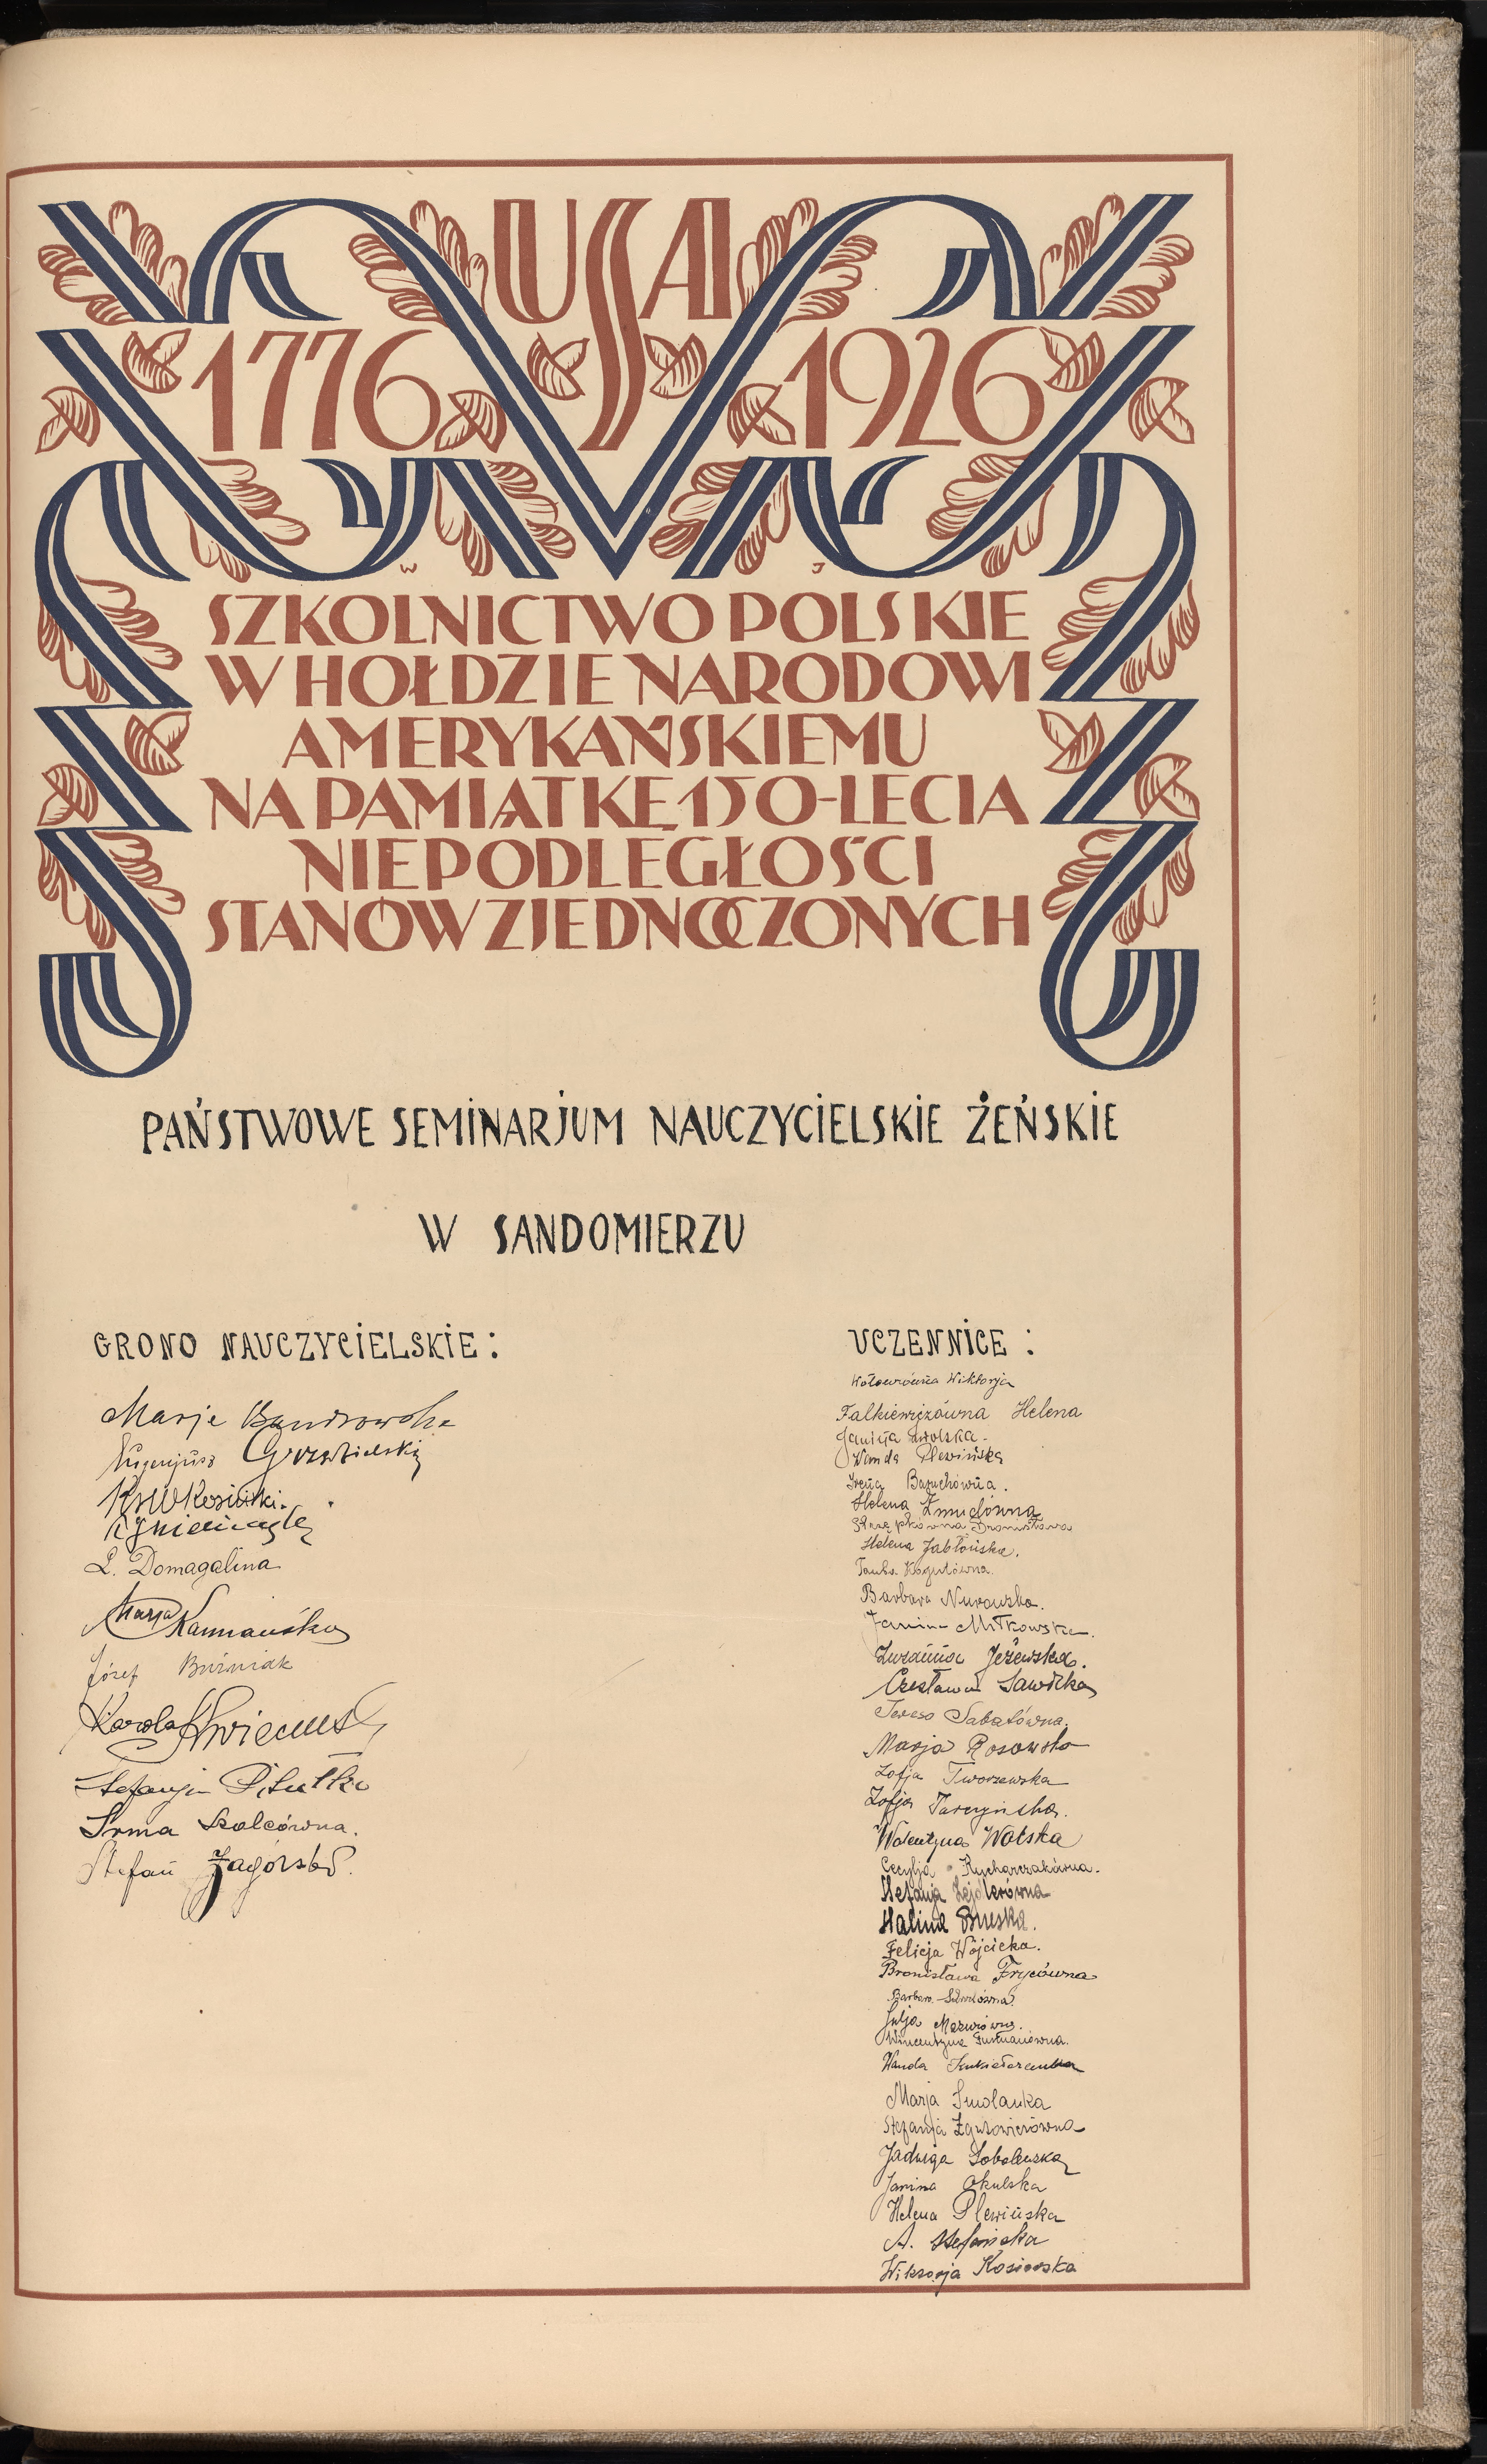 USA
1776 1926
W J
SZKOLNICTWO POLSKIE
W HOŁDZIE NARODOWI
AMERYKAŃSKIEMU
NA PAMIĄTKĘ 150-LECIA
NIEPODLEGŁOŚCI
STANÓW ZJEDNOCZONYCH
PAŃSTWOWE SEMINARJUM NAUCZYCIELSKIE ŻEŃSKIE
W SANDOMIERZU
GRONO NAUCZYCIELSKIE:
Marja
Eugenjusz
L. Domagalina
Marja
Józef Buźniak
Karola
Stefanja
Irma Szolcówna.
Stefan Zagórski.
UCZENNICE:
Wiktorja
Falkiewiczówna Helena
Janina Zwolska.
Wanda Plewińska
Irena
Helena Żmudówna
Bronisława
Helena Jabłońska.
Barbara Nurowska.
Janina Miłkowska.
Zuzanna Jeżewska.
Czesława Sawicka
Teresa Sabatówna.
Marja Rosowska
Zofja Tworzewska
Zofja Tarczyńska.
Walentyna Wolska
Cecylja Rycharczakówna.
Stefanja Zejdlerówna
Halina Buska.
Felicja Wójcicka.
Bronisława Frycówna
Barbara
Julja Mazurówna.
Wincentyna Furmanówna.
Wanda
Marja Smolanka
Stefanja
Jadwiga Sobolewska
Janina Okulska
Helena Plewińska
A. Stefańska
Wiktorja Kosiorska